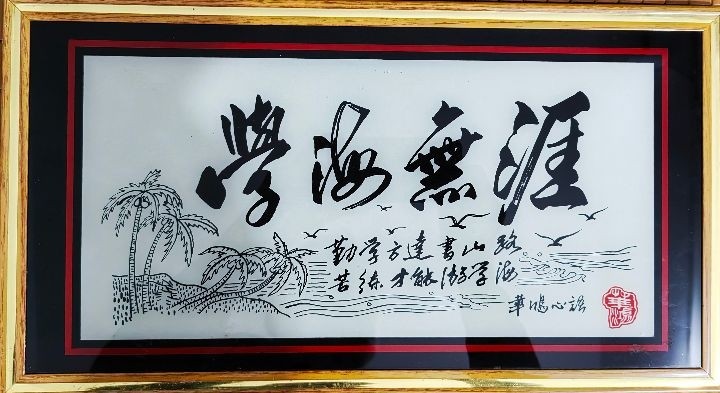 學海無涯
勤学方達書山路
苦练才能游学海
華鴻心语
華鴻